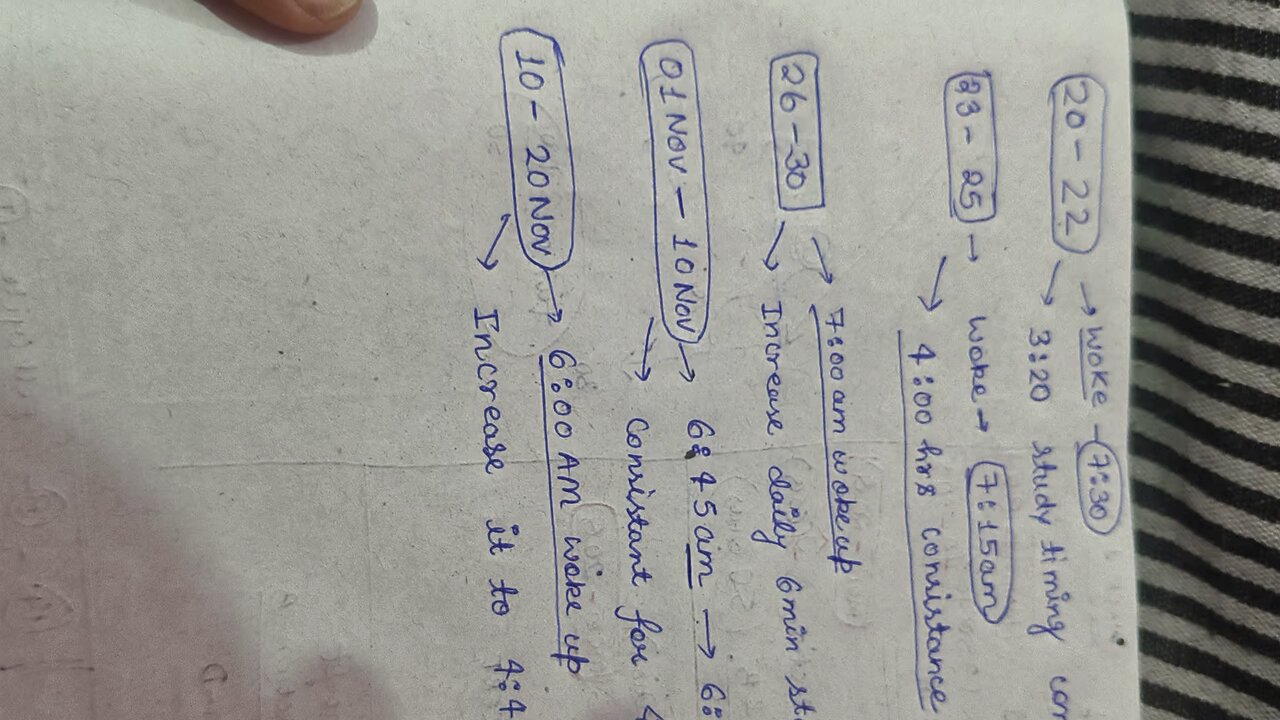 20 - 22 → woke - 7:30
→ 3:20 study timing
23 - 25 → woke → 7:15am
→ 4:00 hrs consistance
26 - 30 → 7:00 am woke up
→ Increase daily 6min
01 Nov - 10 Nov → 6:45am →
→ consistant for
10 - 20 Nov → 6:00 AM woke up
→ Increase it to